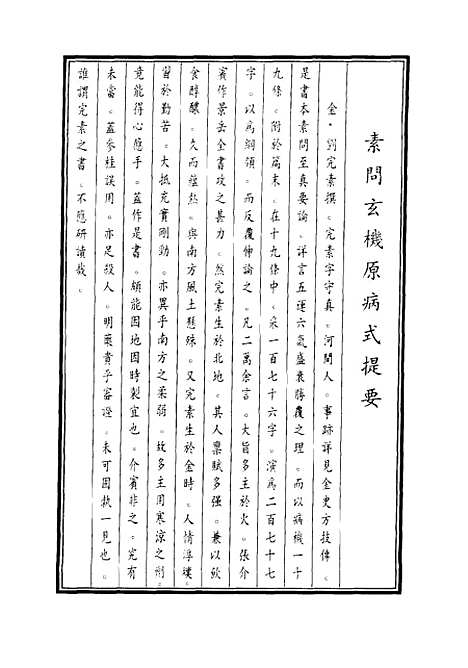 素問玄機原病式提要
金．劉完素撰。完素字守真。河間人。事跡詳見金史方技傳。
是書本素問至真要論。詳言五運六氣盛衰勝覆之理。而以病機一十
九條。附於篇末。在十九條中。采一百七十六字。演為二百七十七
字。以為綱領。而反覆伸論之。凡二萬余言。大旨多主於火。張介
賓作景岳全書攻之甚力。然完素生於北地。其人稟賦多强。兼以飲
食醇醲。久而蘊熱。與南方風土懸殊。又完素生於金時。人情淳樸。
習於勤苦。大抵充實剛勁。亦異乎南方之柔弱。故多主用寒涼之劑。
竟能得心應手。蓋作是書。頗能因地因時製宜也。介賓非之。究有
未當。蓋參桂誤用。亦足殺人。明藥貴乎審證。未可固執一見也。
誰謂完素之書。不應研讀哉。